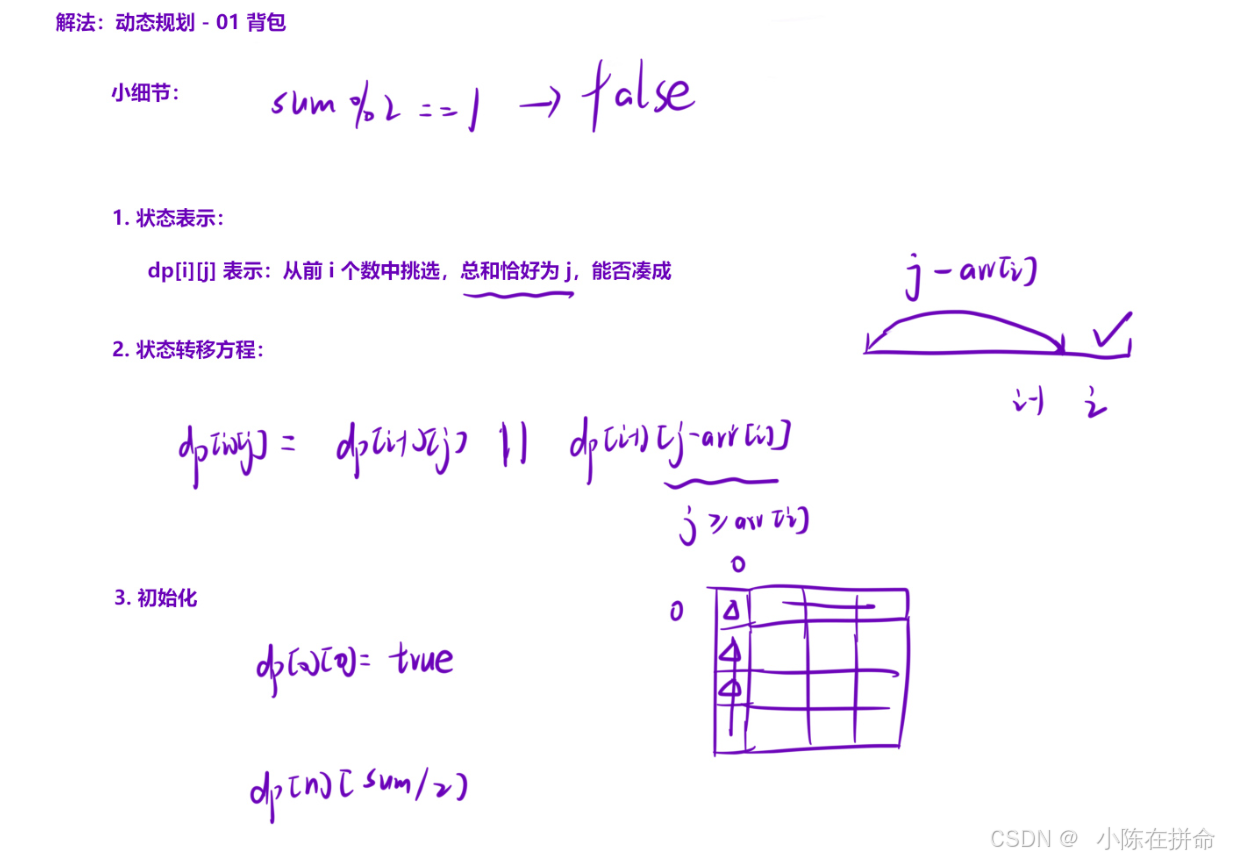 解法：动态规划 - 01 背包
小细节：
sum % 2 == 1 → false
1. 状态表示：
dp[i][j] 表示：从前 i 个数中挑选，总和恰好为 j，能否凑成
j - arr[i]
2. 状态转移方程：
i-1 i
dp[i][j] = dp[i-1][j] || dp[i-1][j-arr[i]]
j ≥ arr[i]
0
3. 初始化
0
dp[0][0] = true
dp[n][sum/2]
CSDN @ 小陈在拼命